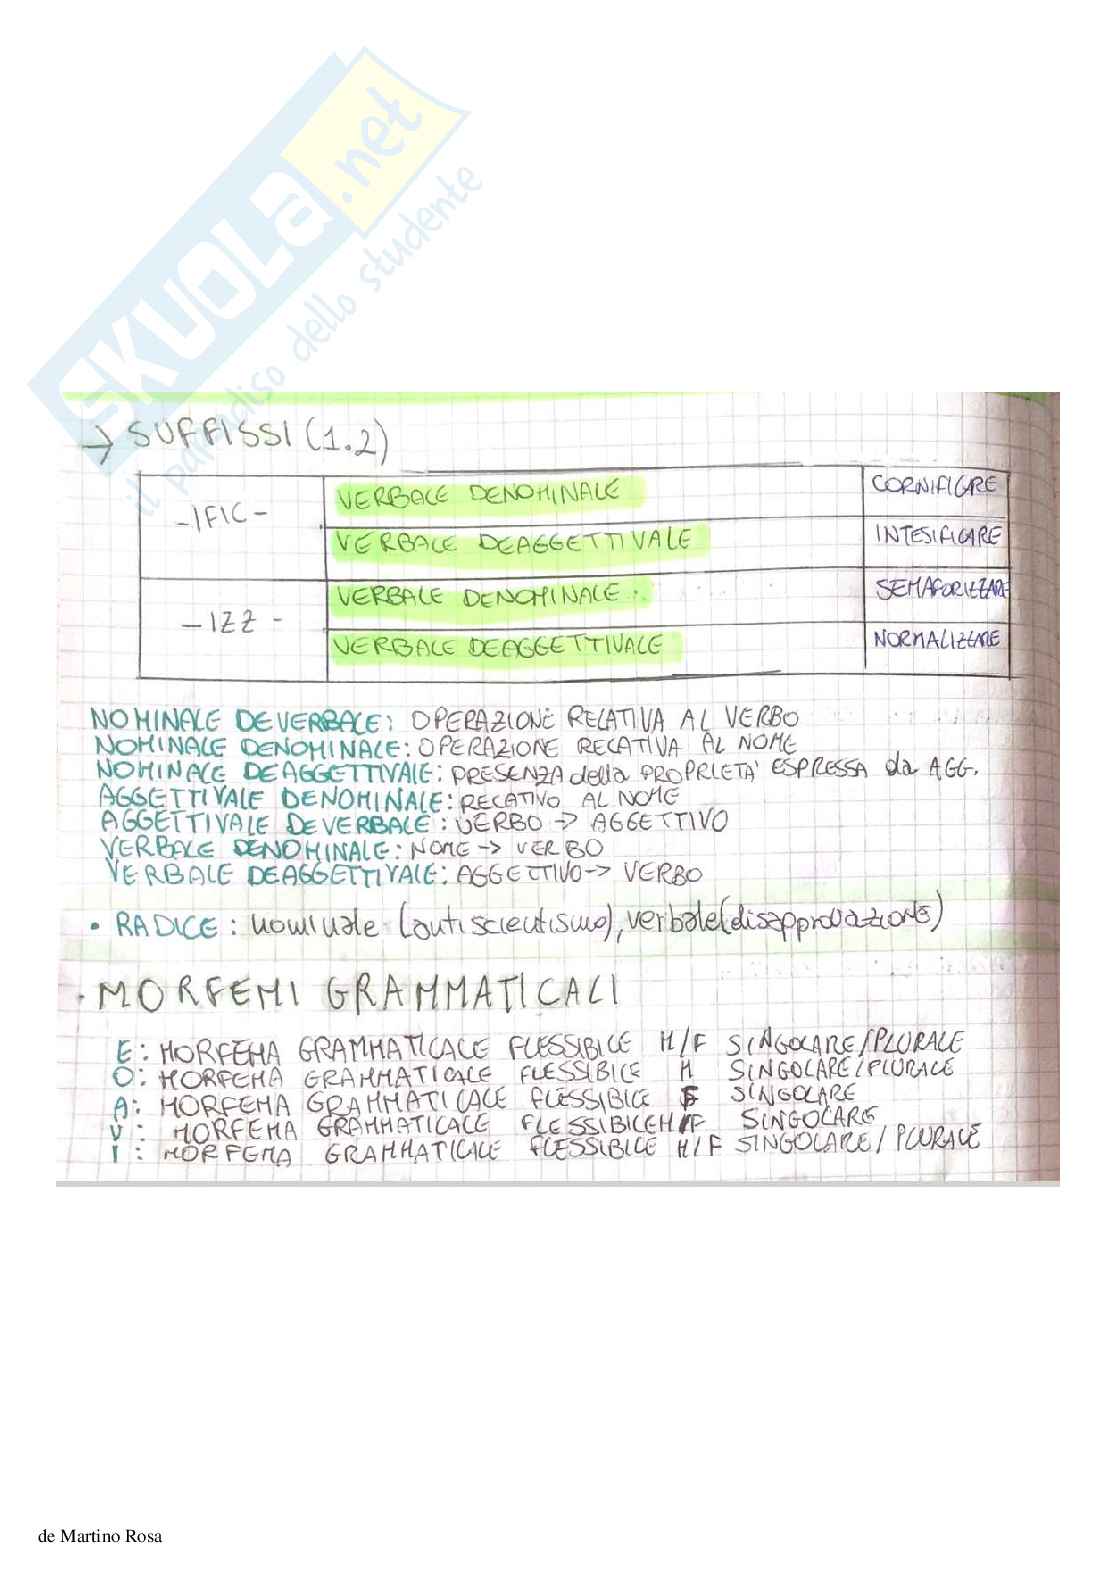 SKUOLA.net
il paradiso dello studente
→ SUFFISSI (1.2)
-IFIC-
VERBALE DENOMINALE
CORNIFICARE
VERBALE DEAGGETTIVALE
INTESIFICARE
-IZZ-
VERBALE DENOMINALE
SEMAFORIZZARE
VERBALE DEAGGETTIVALE
NORMALIZZARE
NOMINALE DEVERBALE: OPERAZIONE RELATIVA AL VERBO
NOMINALE DENOMINALE: OPERAZIONE RELATIVA AL NOME
NOMINALE DEAGGETTIVALE: PRESENZA della PROPRIETA' ESPRESSA da AGG.
AGGETTIVALE DENOMINALE: RELATIVO AL NOME
AGGETTIVALE DEVERBALE: VERBO → AGGETTIVO
VERBALE DENOMINALE: NOME → VERBO
VERBALE DEAGGETTIVALE: AGGETTIVO → VERBO
• RADICE: nominale (antiscientismo), verbale (disapprovazione)
• MORFEMI GRAMMATICALI
E: MORFEMA GRAMMATICALE FLESSIBILE M/F SINGOLARE/PLURALE
O: MORFEMA GRAMMATICALE FLESSIBILE M SINGOLARE/PLURALE
A: MORFEMA GRAMMATICALE FLESSIBILE F SINGOLARE
U: MORFEMA GRAMMATICALE FLESSIBILE M/F SINGOLARE
I: MORFEMA GRAMMATICALE FLESSIBILE M/F SINGOLARE/PLURALE
de Martino Rosa